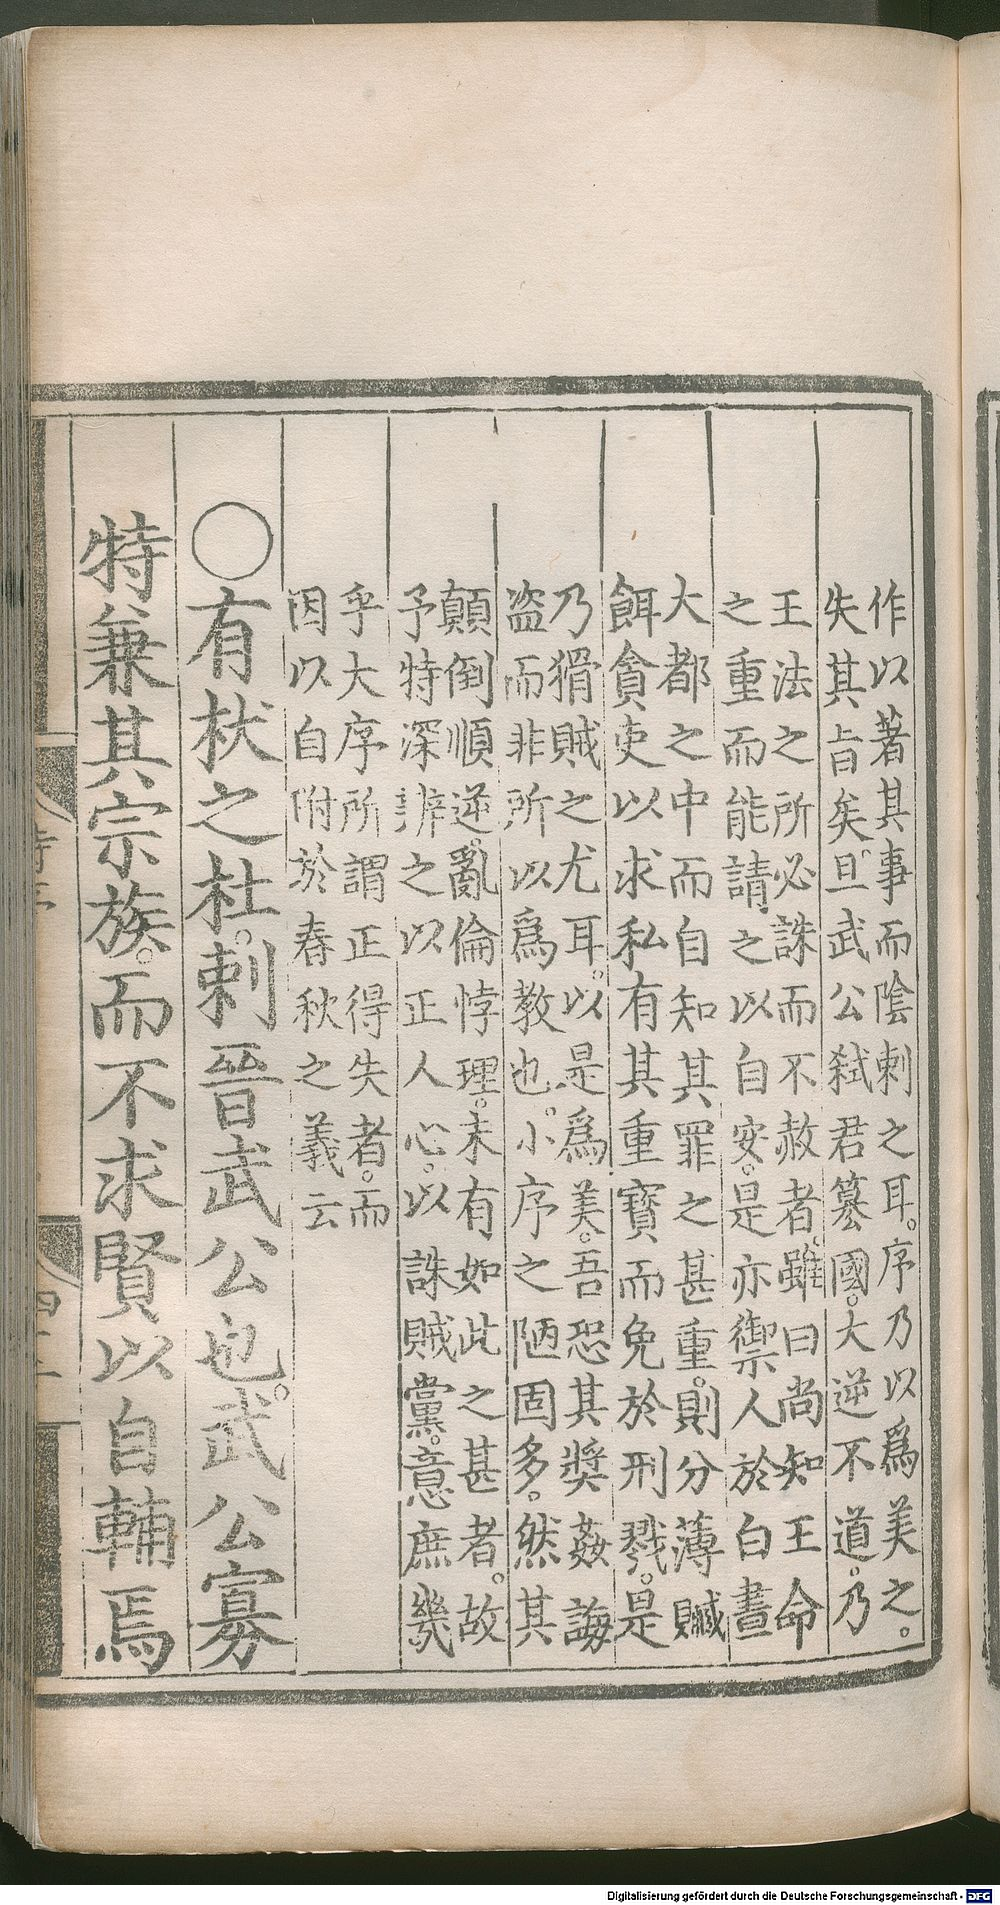 作以著其事而陰刺之耳。序乃以爲美之。
失其旨矣。且武公弑君篡國。大逆不道。乃
王法之所必誅而不赦者。雖曰尚知王命
之重而能請之以自安。是亦禦人於白晝
大都之中而自知其罪之甚重。則分薄贓
餌貪吏以求私有其重寶而免於刑戮。是
乃猾賊之尤耳。以是爲美。吾恐其奬姦誨
盗而非所以爲教也。小序之陋固多。然其
顛倒順逆。亂倫悖理。未有如此之甚者。故
予特深辨之以正人心。以誅賊黨。意庶幾
乎大序所謂正得失者。而
因以自附於春秋之義云
○有杕之杜。刺晉武公也。武公寡
特兼其宗族。而不求賢以自輔焉
Digitalisierung gefördert durch die Deutsche Forschungsgemeinschaft - DFG